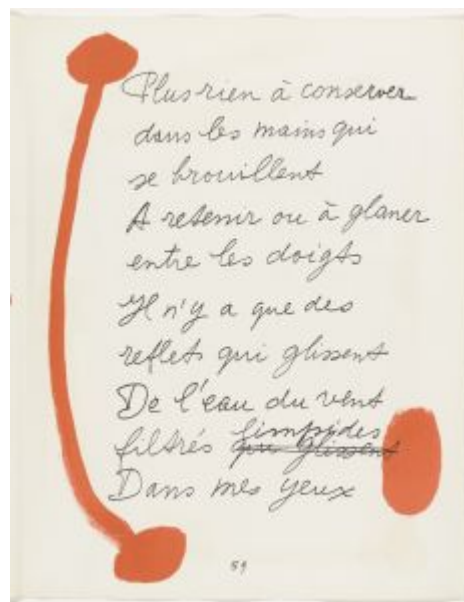 Plus rien à conserver
dans les mains qui
se brouillent
A retenir ou à glaner
entre les doigts
Il n'y a que des
reflets qui glissent
De l'eau du vent
limpides
filtrés qui glissent
Dans mes yeux
59